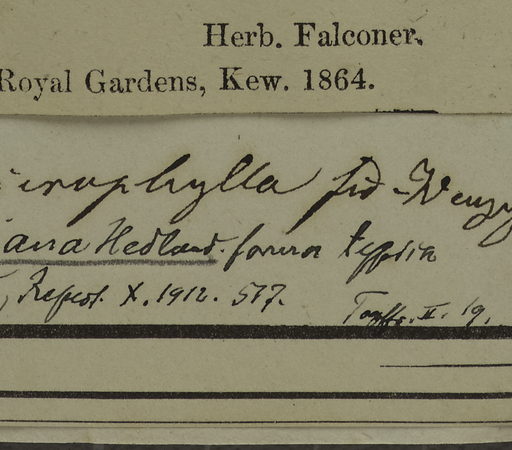 Herb. Falconer.
Royal Gardens, Kew. 1864.
icrophylla fid Wenzig
iana Hedlund forma typica
Repert. X. 1912. 517.
II. 19.